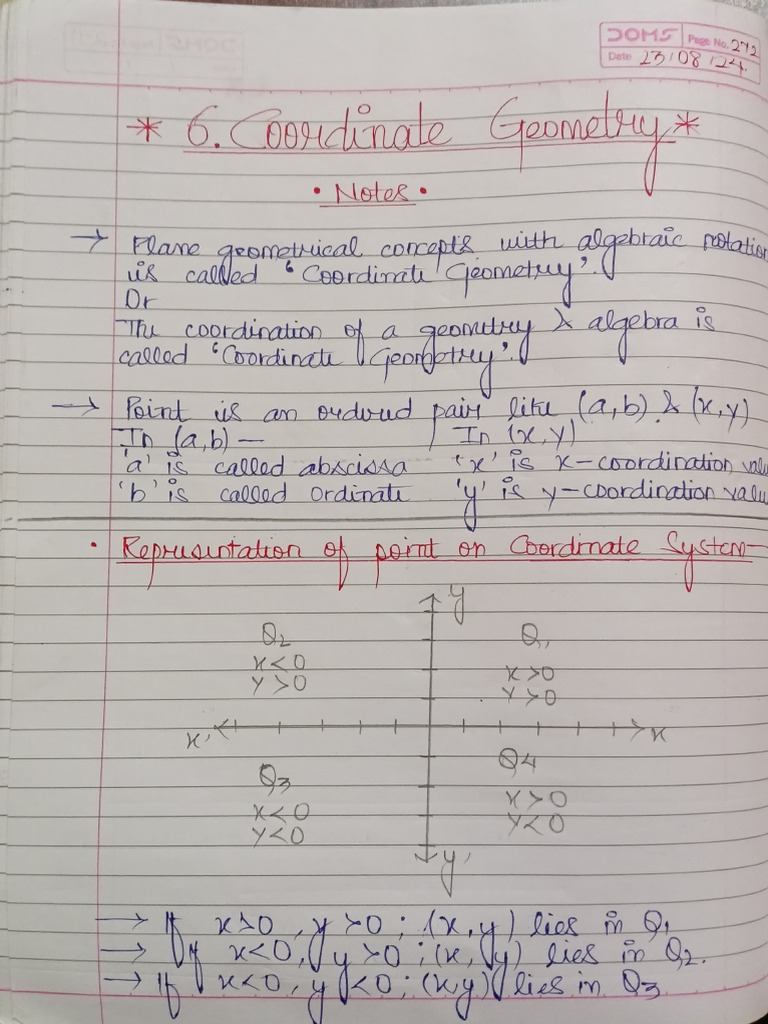 DOMS Page No. 272
Date 23/08/24
* 6. Coordinate Geometry *
• Notes •
→ Plane geometrical concepts with algebraic notation
is called 'Coordinate Geometry'.
Or
The coordination of a geometry & algebra is
called 'Coordinate Geometry'.
→ Point is an ordered pair like (a,b) & (x,y)
In (a,b) — In (x,y)
'a' is called abscissa 'x' is x-coordination valu
'b' is called ordinate 'y' is y-coordination valu
• Representation of point on Coordinate System-
y
Q2 Q1
x<0 x>0
y>0 y>0
x' x
Q3 Q4
x<0 x>0
y<0 y<0
y'
→ If x>0, y>0; (x,y) lies in Q1
→ If x<0, y>0; (x,y) lies in Q2.
→ If x<0, y<0; (x,y) lies in Q3